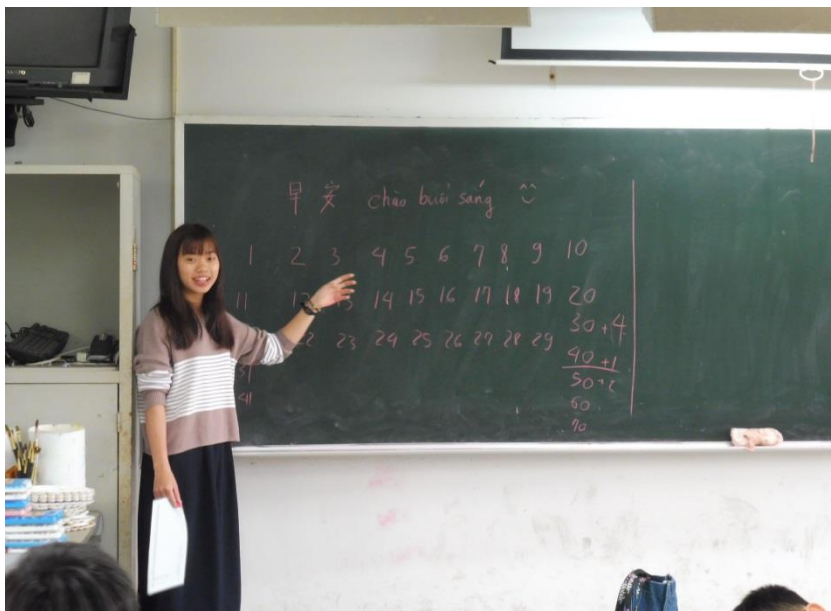 早安 chào buổi sáng
1 2 3 4 5 6 7 8 9 10
11 12 13 14 15 16 17 18 19 20
30+4
22 23 24 25 26 27 28 29
40+1
31
50+2
41
60
70